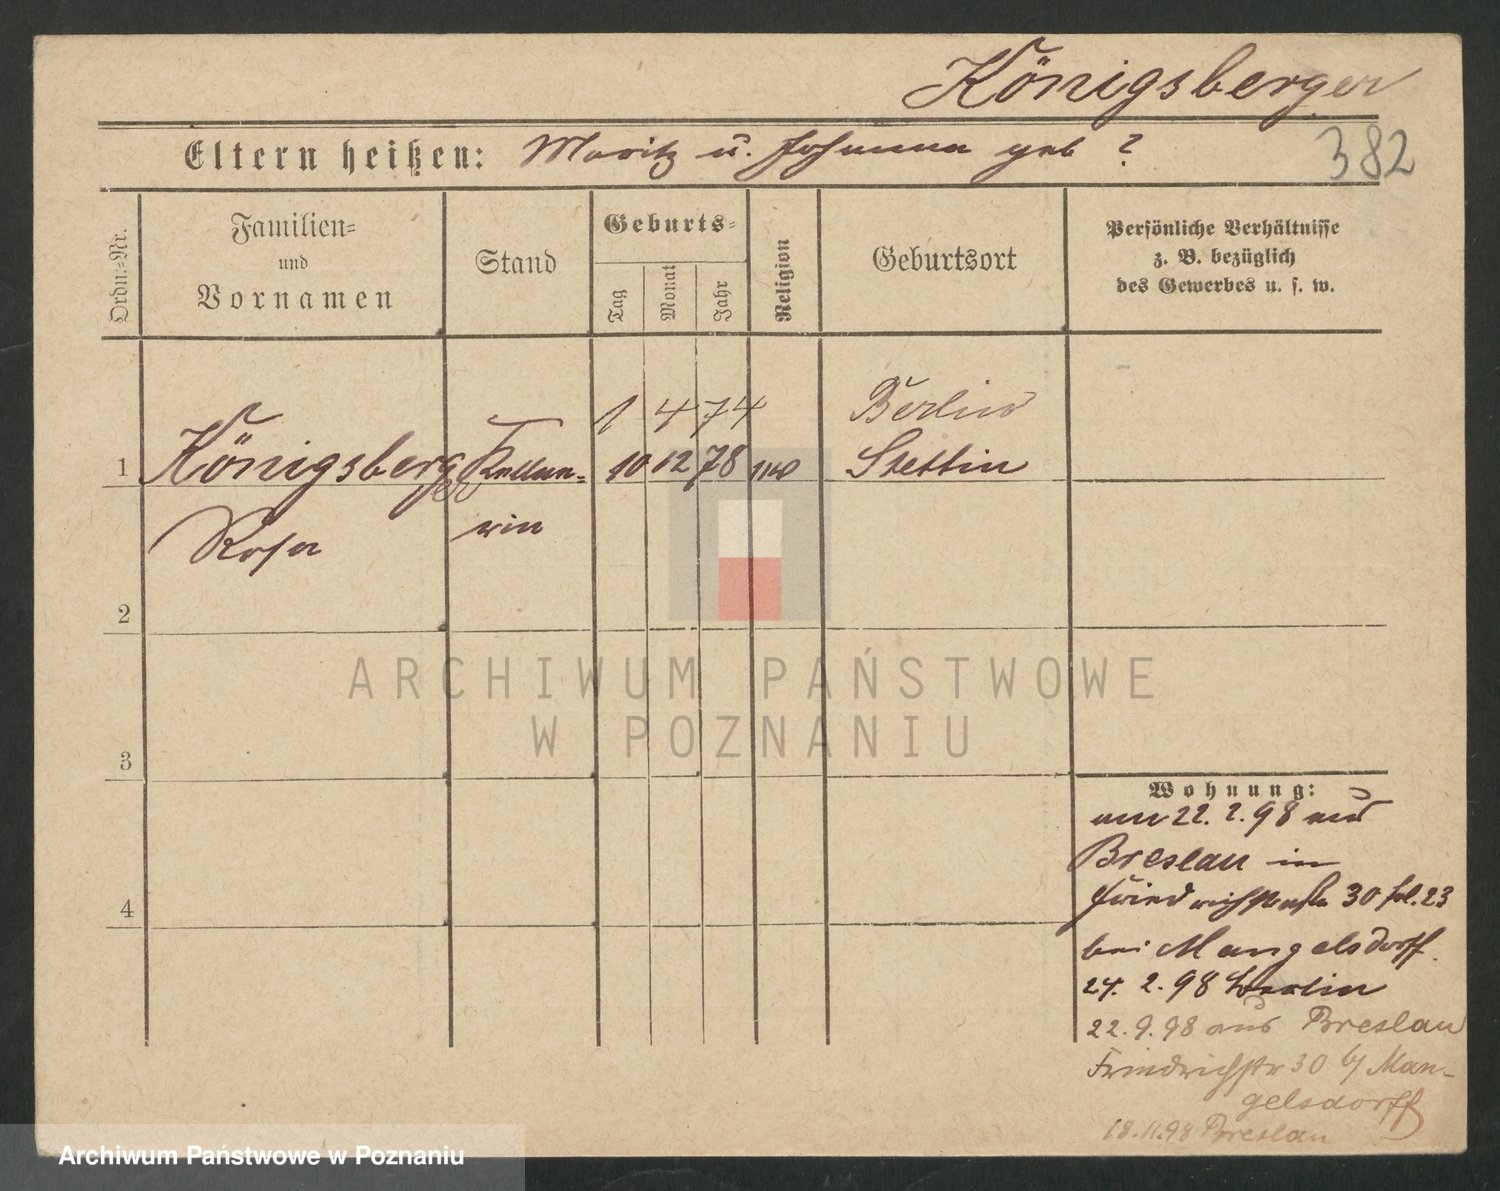 Königsberger
Eltern heißen: Moritz u. Johanna geb ?
382
Ordn.-Nr.
Familien-
und
Vornamen
Stand
Geburts-
Tag
Monat
Jahr
Religion
Geburtsort
Persönliche Verhältnisse
z. B. bezüglich
des Gewerbes u. s. w.
1 4 74 Berlin
1 Königsberger Kellne- 10 12 78 Stettin
Rosa rin
2
3
4
Wohnung:
am 22. 2. 98 aus
Breslau in
Friedrichstraße 30 bei
bei Mangelsdorff.
24. 2. 98 Berlin
22. 9. 98 aus Breslau
Friedrichstr 30 b/ Man-
gelsdorff
18. 11. 98 Breslau
ARCHIWUM PAŃSTWOWE
W POZNANIU
Archiwum Państwowe w Poznaniu